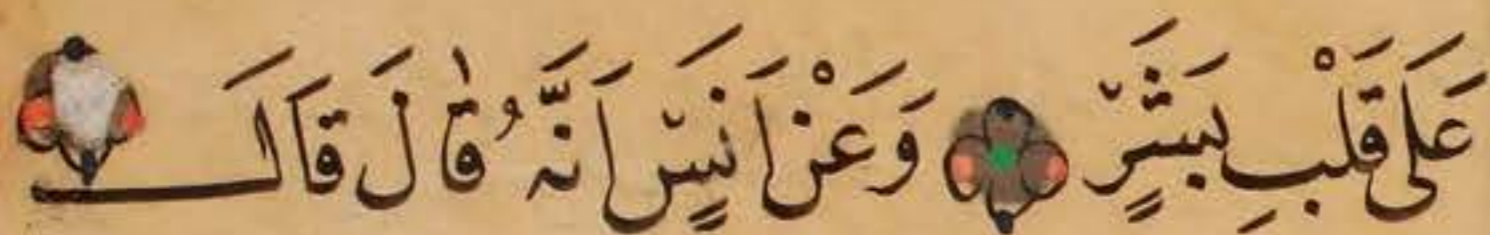 عَلَى قَلْبِ بَشَرٍ وَعَنْ اَنَسٍ اَنَّهُ قَالَ قَالَ